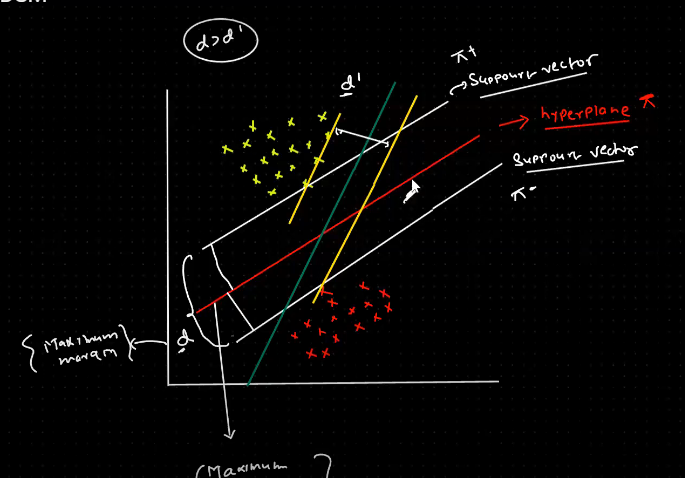 d>d'
d'
π+
Suppourt vector
hyperplane π
Suppourt vector
π-
d
{Maximum
margin}
(Maximum